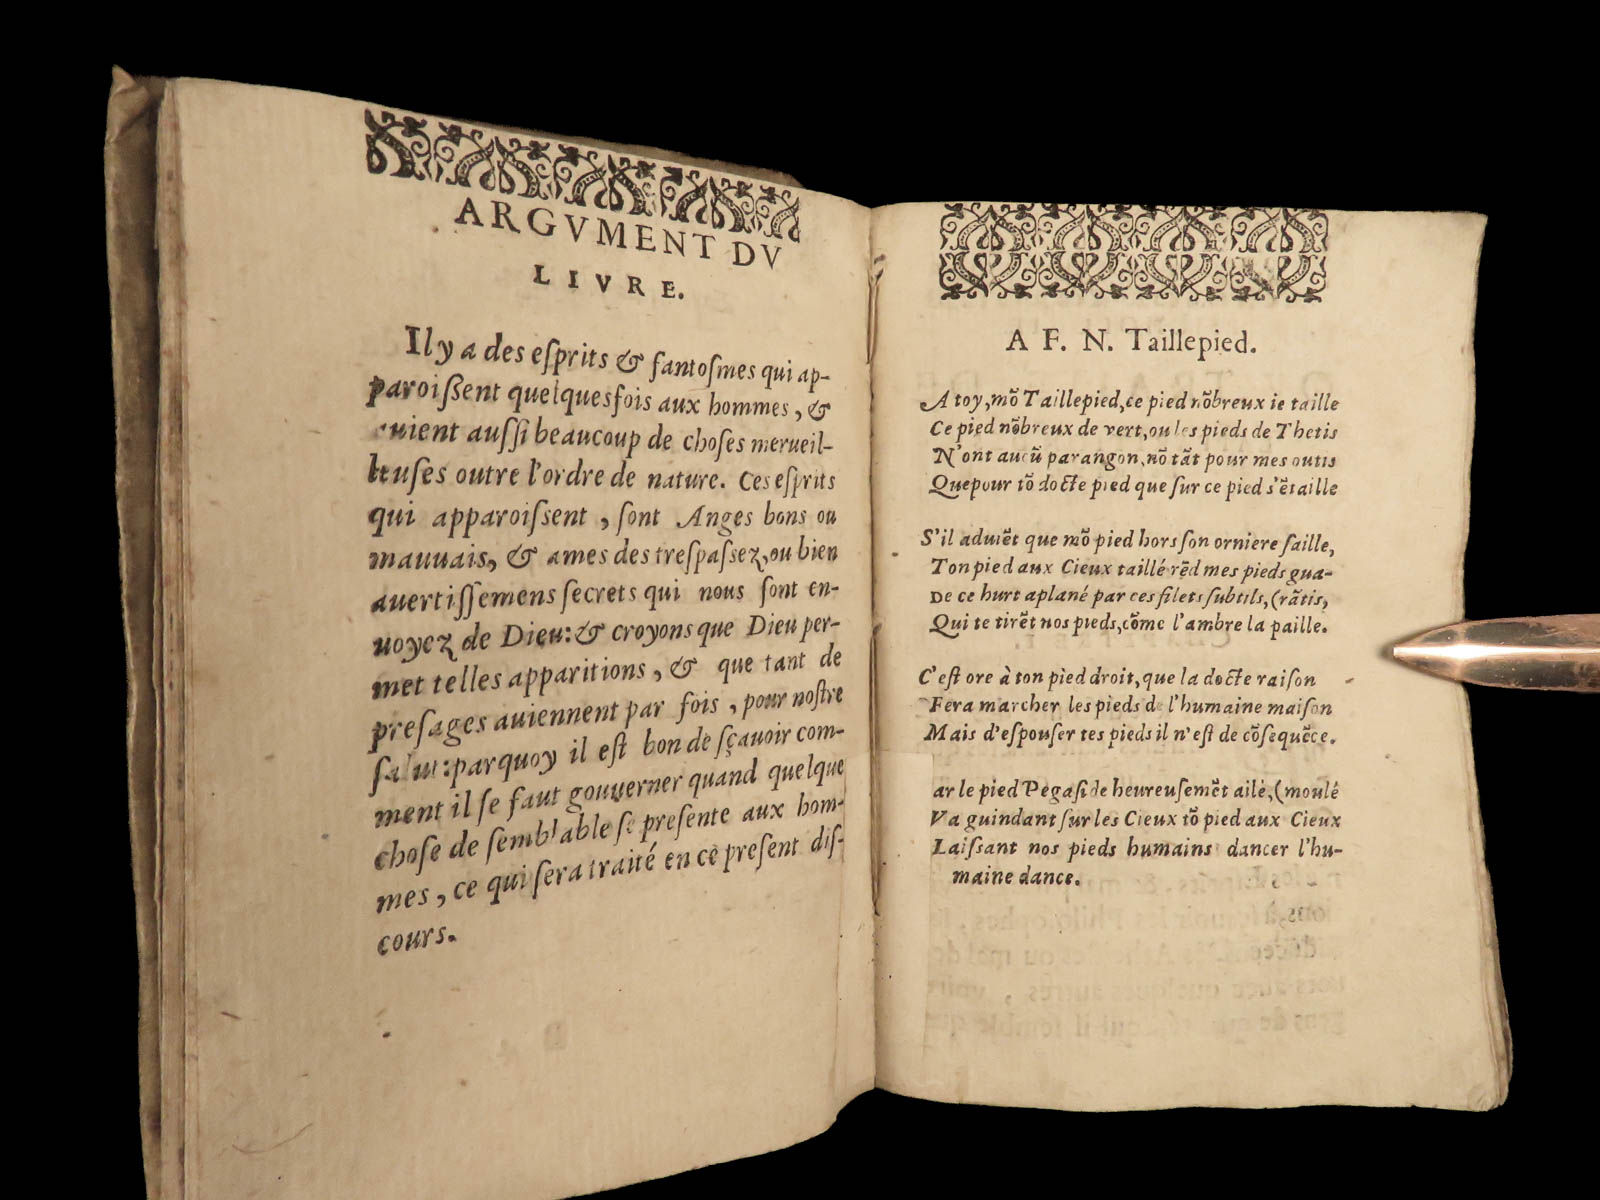 ARGVMENT DV
LIVRE.
Il y a des eſprits & fantoſmes qui ap-
paroiſſent quelquesfois aux hommes, &
auient auſſi beaucoup de choſes merueil-
leuſes outre l'ordre de nature. Ces eſprits
qui apparoiſſent, ſont Anges bons ou
mauuais, & ames des treſpaſſez, ou bien
auertiſſemens ſecrets qui nous ſont en-
uoyez de Dieu: & croyons que Dieu per-
met telles apparitions, & que tant de
preſages auiennent par fois, pour noſtre
ſalut: parquoy il eſt bon de ſçauoir com-
ment il ſe faut gouuerner quand quelque
choſe de ſemblable ſe preſente aux hom-
mes, ce qui ſera traité en ce preſent diſ-
cours.
A F. N. Taillepied.
A toy, mō Taillepied, ce pied nōbreux ie taille
Ce pied nōbreux de vert, ou les pieds de Thetis
N'ont aucū parangon, nō tāt pour mes outis
Que pour tō docte pied que ſur ce pied s'ētaille
S'il aduiēt que mō pied hors ſon orniere ſaille,
Ton pied aux Cieux taillé rēd mes pieds gua-
De ce hurt aplané par ces filets ſubtils, (rātis,
Qui te tirēt nos pieds, cōme l'ambre la paille.
C'eſt ore à ton pied droit, que la docte raiſon
Fera marcher les pieds de l'humaine maiſon
Mais d'eſpouſer tes pieds il n'eſt de cōſequēce.
ar le pied Pegaſide heureuſemēt ailé, (moulé
Va guindant ſur les Cieux tō pied aux Cieux
Laiſſant nos pieds humains dancer l'hu-
maine dance.